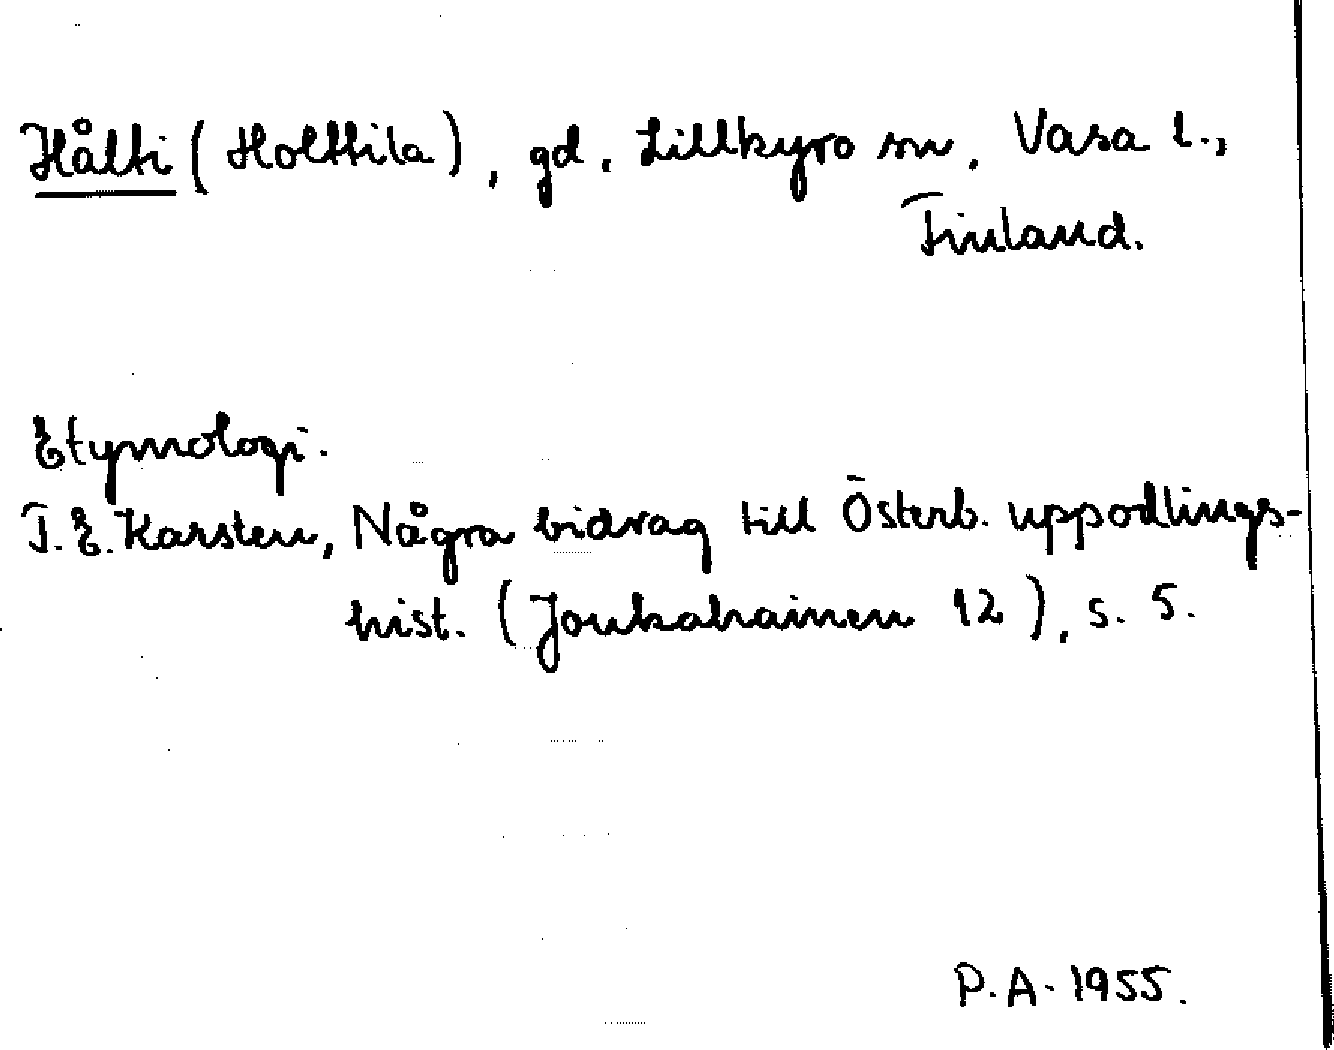 Hålti (Holttila), gd, Lillkyro sn, Vasa l.,
Finland.
Etymologi.
T. E. Karsten, Några bidrag till Österb. uppodlings-
hist. (Joukahainen 12), s. 5.
P. A. 1955.